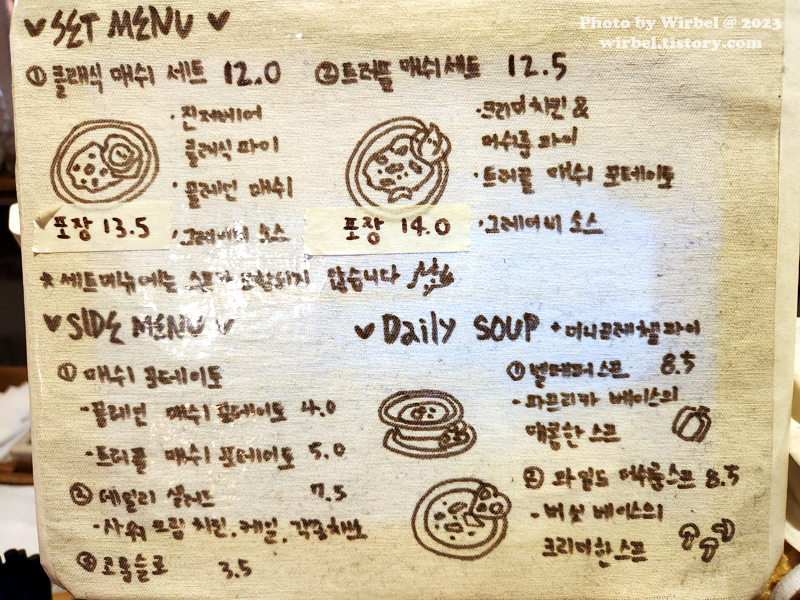 Photo by Wirbel @ 2023
wirbel.tistory.com
♥ SET MENU ♥
① 클래식 매쉬 세트 12.0
· 진저베어
클래식 파이
· 플레인 매쉬
· 그레이비 소스
포장 13.5
② 트러플 매쉬 세트 12.5
· 크리미 치킨 &
머쉬룸 파이
· 트러플 매쉬 포테이토
· 그레이비 소스
포장 14.0
* 세트메뉴에는 스프가 포함되지 않습니다
♥ SIDE MENU ♥
① 매쉬 포테이토
- 플레인 매쉬 포테이토 4.0
- 트러플 매쉬 포테이토 5.0
② 데일리 샐러드 7.5
- 사워크림 치킨, 케일, 각종채소
③ 코울슬로 3.5
♥ Daily SOUP + 미니 클래식 파이
① 벨페퍼 스프 8.5
- 파프리카 베이스의
매콤한 스프
② 와일드 머쉬룸 스프 8.5
- 버섯 베이스의
크리미한 스프